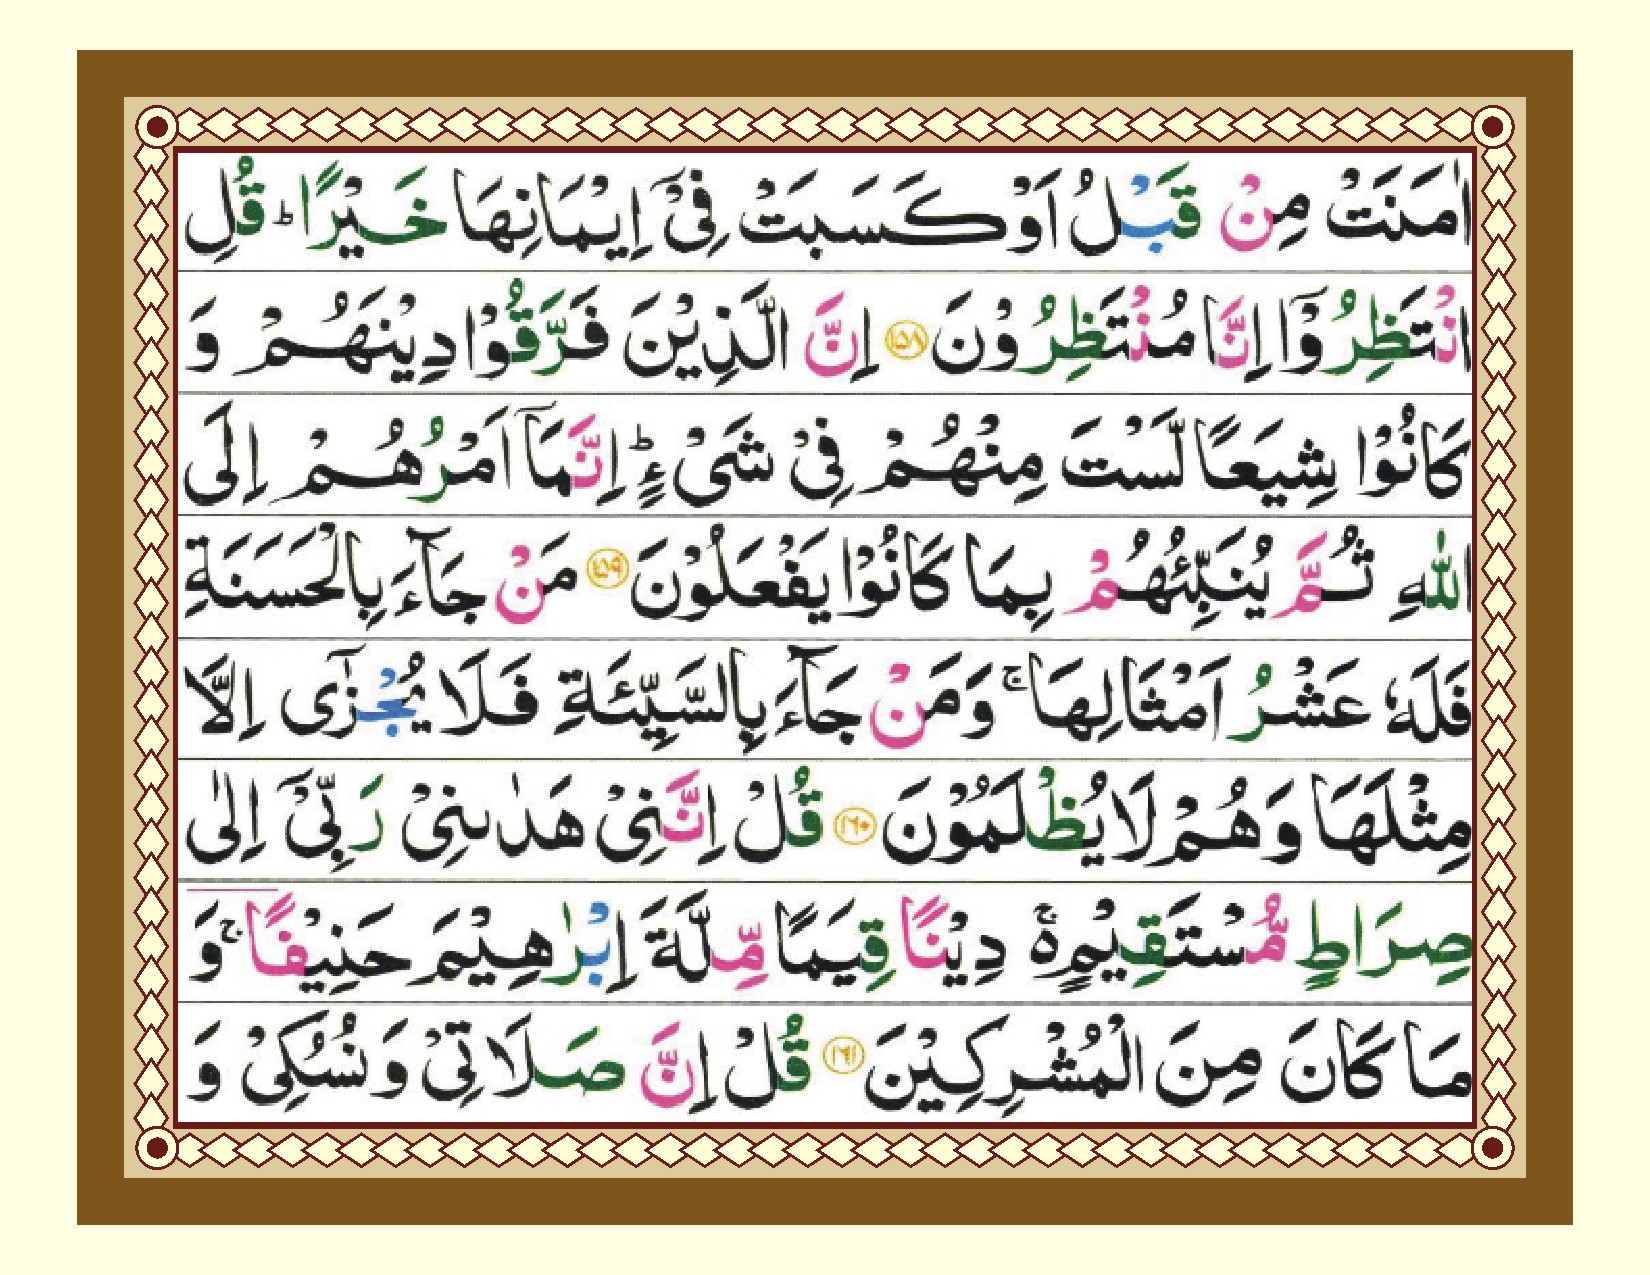 اٰمَنَتْ مِنْ قَبْلُ اَوْ كَسَبَتْ فِیْۤ اِیْمَانِهَا خَیْرًا ؕ قُلِ
انْتَظِرُوْۤا اِنَّا مُنْتَظِرُوْنَ ﴿۱۵۸﴾ اِنَّ الَّذِیْنَ فَرَّقُوْا دِیْنَهُمْ وَ
كَانُوْا شِیَعًا لَّسْتَ مِنْهُمْ فِیْ شَیْءٍ ؕ اِنَّمَاۤ اَمْرُهُمْ اِلَی
اللّٰهِ ثُمَّ یُنَبِّئُهُمْ بِمَا كَانُوْا یَفْعَلُوْنَ ﴿۱۵۹﴾ مَنْ جَآءَ بِالْحَسَنَةِ
فَلَهٗ عَشْرُ اَمْثَالِهَا ۚ وَمَنْ جَآءَ بِالسَّیِّئَةِ فَلَا یُجْزٰۤی اِلَّا
مِثْلَهَا وَهُمْ لَا یُظْلَمُوْنَ ﴿۱۶۰﴾ قُلْ اِنَّنِیْ هَدٰىنِیْ رَبِّیْۤ اِلٰی
صِرَاطٍ مُّسْتَقِیْمٍ ۚ۬ دِیْنًا قِیَمًا مِّلَّةَ اِبْرٰهِیْمَ حَنِیْفًا ۚ وَ
مَا كَانَ مِنَ الْمُشْرِكِیْنَ ﴿۱۶۱﴾ قُلْ اِنَّ صَلَاتِیْ وَنُسُكِیْ وَ